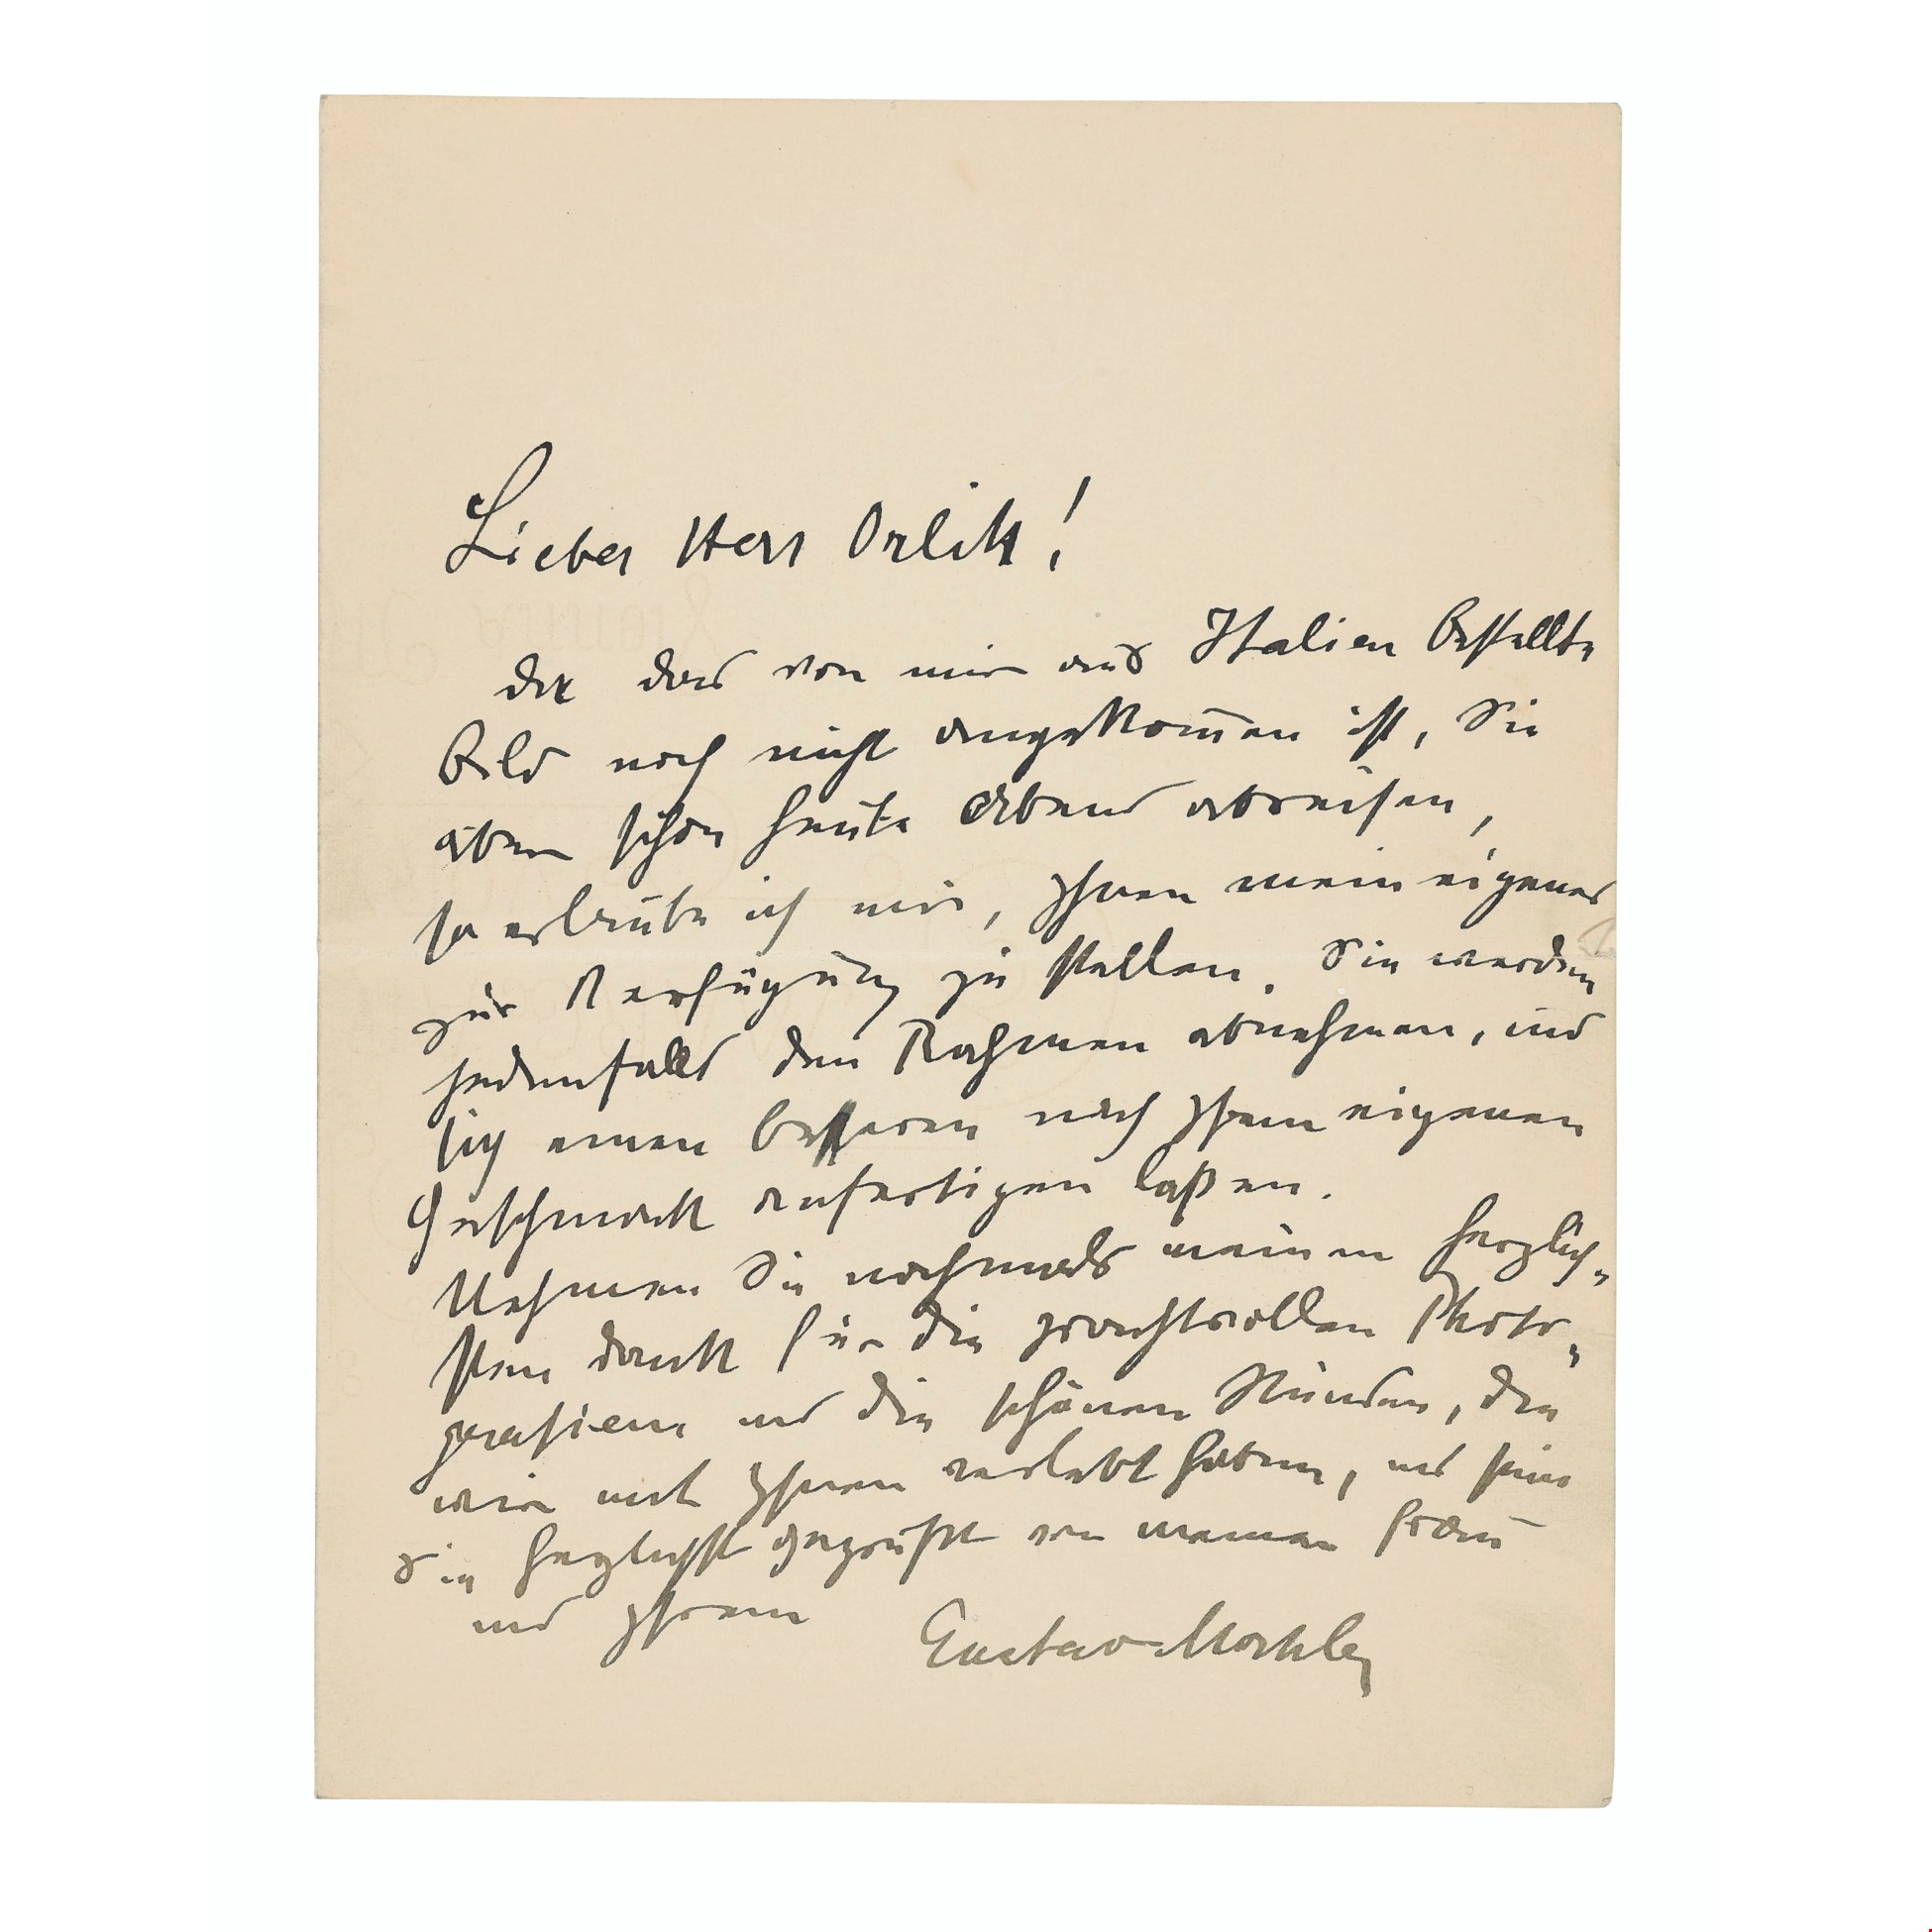 Lieber Herr Orlik!
da das von mir aus Italien bestellte
Bild noch nicht angekom̅en ist, Sie
aber schon heute Abend abreisen,
so erlaube ich mir, Ihnen mein eigenes
zur Verfügung zu stellen. Sie werden
jedenfalls den Rahmen abnehmen, und
sich einen besseren nach Ihrem eigenen
Geschmack anfertigen laßen.
Nehmen Sie nochmals meinen herzlich-
sten Dank für die prachtvollen Photo-
grafien und die schönen Stunden, die
wir mit Ihnen verlebt haben, und seien
Sie herzlichst gegrüßt von meiner Frau
und Ihrem
Gustav Mahler